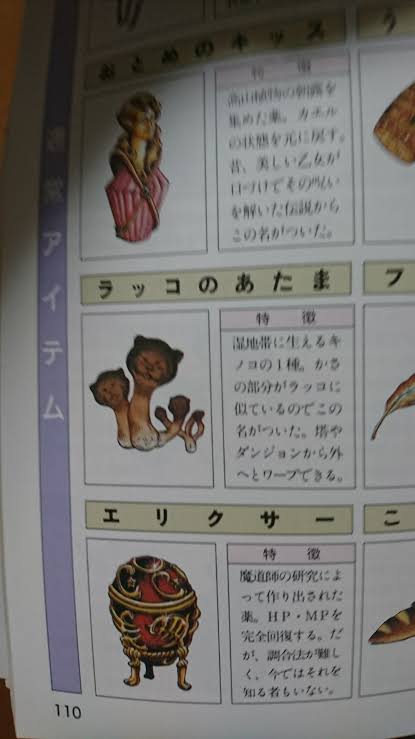 おとめのキッス
う
特徴
高山植物の朝露を
集めた薬。カエル
の状態を元に戻す。
昔、美しい乙女が
口づけでその呪い
を解いた伝説から
この名がついた。
通常アイテム
ラッコのあたま
フ
特徴
湿地帯に生えるキ
ノコの1種。かさ
の部分がラッコに
似ているのでこの
名がついた。塔や
ダンジョンから外
へとワープできる。
エリクサー
こ
特徴
魔道師の研究によ
って作り出された
薬。HP・MPを
完全回復する。だ
が、調合法が難し
く、今ではそれを
知る者もいない。
110